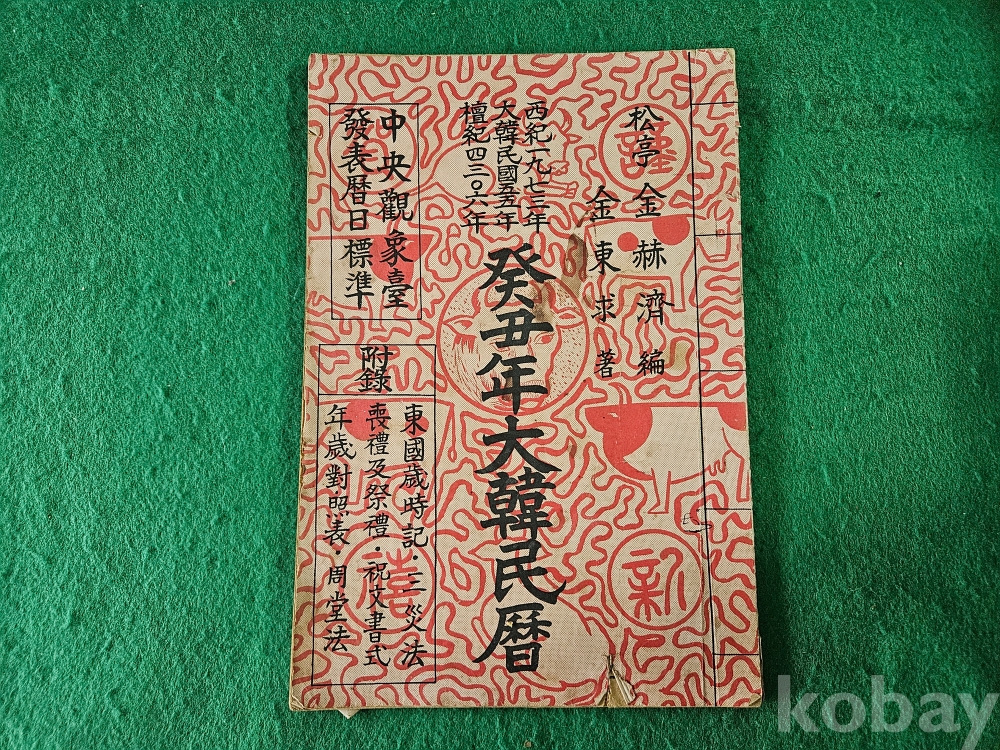 松亭 金赫濟 編
金東求 著
西紀一九七三年
大韓民國五五年
檀紀四三〇六年
癸丑年大韓民曆
中央觀象臺
發表曆日標準
附錄
東國歲時記·三災法
喪禮及祭禮·祝文書式
年歲對照表·周堂法
謹
新
禧
kobay